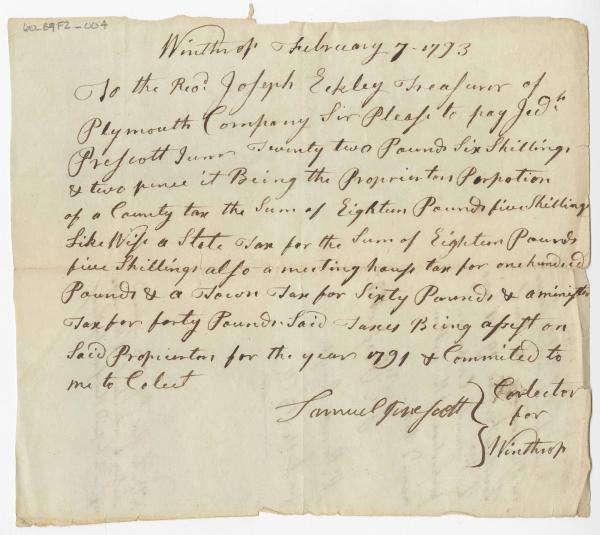 60-69F2-004
Winthrop February 7-1793
To the Revd. Joseph Eckley Treasurer of
Plymouth Company Sir Please to pay Jedh
Prescott Junr Twenty two Pounds Six Shillings
& two pence it Being the Proprietors Porpotion
of a County tax the Sum of Eighteen Pounds five Shillings
Like Wise a State Tax for the Sum of Eighteen Pounds
five Shillings also a meeting house tax for one hundred
Pounds & a Town Tax for Sixty Pounds & a minister
Tax for forty Pounds Said Taxes Being assest on
Said Propierton for the year 1791 & Commited to
me to Colect
Samuel Prescott } Corlector
for
Winthrop